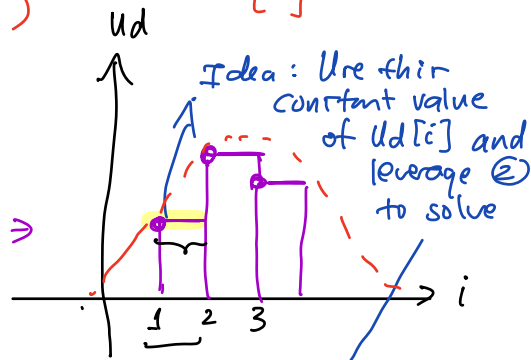 ) [ ]
Ud
Idea : Use this
constant value
of Ud[i] and
leverage ②
to solve
⇒
i
1 2 3